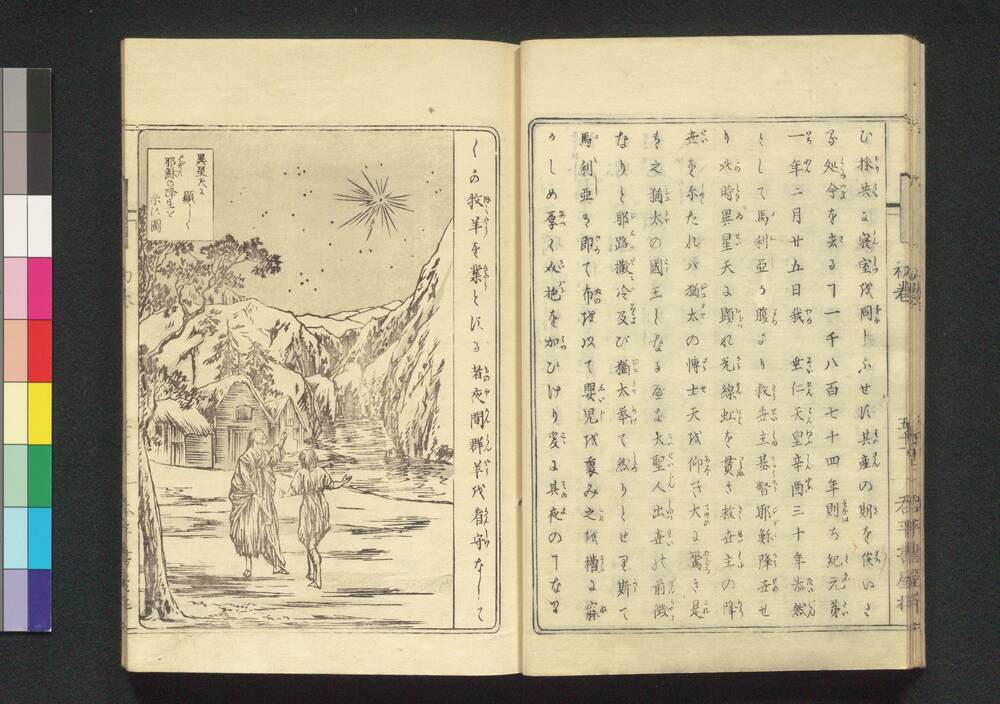 ひ抹共に寝室を同しふせず其産の期を俟いた
る処今を去る事一千八百七十四年則ち紀元第
一年二月廿五日我 垂仁天皇辛酉三十年恭然
として馬利亜の腹より救世主基督耶穌降世せ
り此時異星天に顕れ光線虹を貫き救世主の降
世を示たれバ猶太の博士天を仰ぎ大に驚き是
之猶太の國王となる至大聖人出世の前徴
なりと耶路撒冷及び猶太挙て然りとせり斯て
馬利亜は即て布を以て嬰児を裹み之を槽に寐
かしめ厚く抱を加ひけり爰に其夜の事なり
しか牧羊を業とする者夜間群羊を看守なして
異星天に
顕しく
耶穌の降生を
示す圖
初巻
五